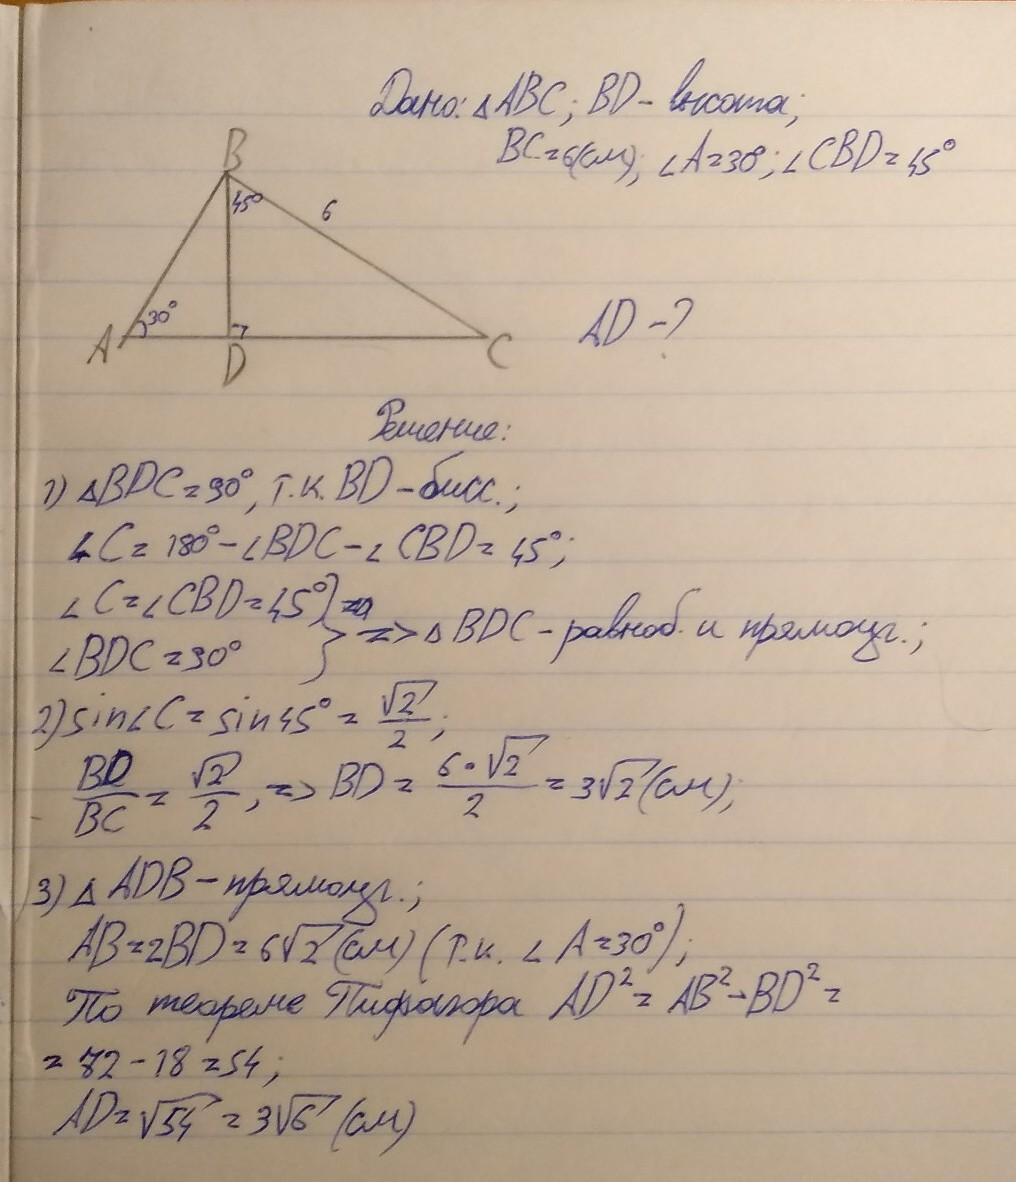 Дано: △ABC; BD - высота;
BC = 6(см); ∠A = 30°; ∠CBD = 45°
B
45°
6
30°
A
D
C
AD - ?
Решение:
1) △BDC = 90°, т.к. BD - бисс.;
∠C = 180° - ∠BDC - ∠CBD = 45°;
∠C = ∠CBD = 45°
∠BDC = 90° } => △BDC - равноб. и прямоуг.;
2) sin∠C = sin45° = √2/2;
BD/BC = √2/2, => BD = 6·√2/2 = 3√2 (см);
3) △ADB - прямоуг.;
AB = 2BD = 6√2 (см) (т.к. ∠A = 30°);
По теореме Пифагора AD² = AB² - BD² =
= 72 - 18 = 54;
AD = √54 = 3√6 (см)